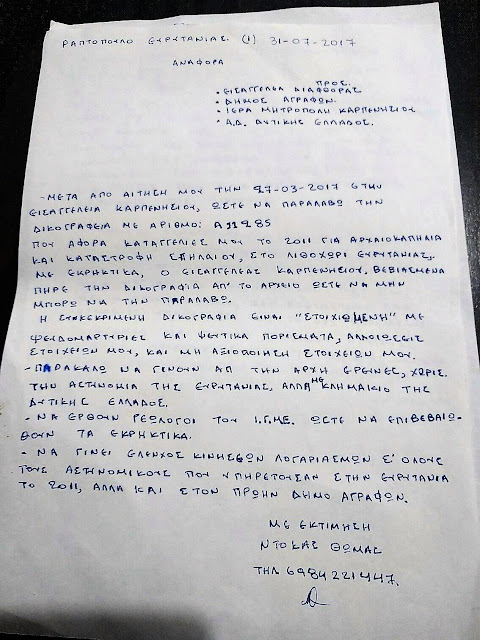 ΡΑΠΤΟΠΟΥΛΟ ΕΥΡΥΤΑΝΙΑΣ. (1) 31-07-2017
ΑΝΑΦΟΡΑ
ΠΡΟΣ.
• ΕΙΣΑΓΓΕΛΕΑ ΔΙΑΦΘΟΡΑΣ
• ΔΗΜΟΣ ΑΓΡΑΦΩΝ.
• ΙΕΡΑ ΜΗΤΡΟΠΟΛΗ ΚΑΡΠΕΝΗΣΙΟΥ
• Α.Δ. ΔΥΤΙΚΗΣ ΕΛΛΑΔΟΣ.
- ΜΕΤΑ ΑΠΟ ΑΙΤΗΣΗ ΜΟΥ ΤΗΝ 27-03-2017 ΣΤΗΝ
ΕΙΣΑΓΓΕΛΕΙΑ ΚΑΡΠΕΝΗΣΙΟΥ, ΩΣΤΕ ΝΑ ΠΑΡΑΛΑΒΩ ΤΗΝ
ΔΙΚΟΓΡΑΦΕΙΑ ΜΕ ΑΡΙΘΜΟ: Α11285
ΠΟΥ ΑΦΟΡΑ ΚΑΤΑΓΓΕΛΙΕΣ ΜΟΥ ΤΟ 2011 ΓΙΑ ΑΡΧΑΙΟΚΑΠΗΛΙΑ
ΚΑΙ ΚΑΤΑΣΤΡΟΦΗ ΣΠΗΛΑΙΟΥ, ΣΤΟ ΛΙΘΟΧΩΡΙ ΕΥΡΥΤΑΝΙΑΣ,
ΜΕ ΕΚΡΗΚΤΙΚΑ, Ο ΕΙΣΑΓΓΕΛΕΑΣ ΚΑΡΠΕΝΗΣΙΟΥ, ΒΕΒΙΑΣΜΕΝΑ
ΠΗΡΕ ΤΗΝ ΔΙΚΟΓΡΑΦΙΑ ΑΠ' ΤΟ ΑΡΧΕΙΟ ΩΣΤΕ ΝΑ ΜΗΝ
ΜΠΟΡΩ ΝΑ ΤΗΝ ΠΑΡΑΛΑΒΩ.
Η ΣΥΓΚΕΚΡΙΜΕΝΗ ΔΙΚΟΓΡΑΦΙΑ ΕΙΝΑΙ "ΣΤΟΙΧΙΩΜΕΝΗ" ΜΕ
ΨΕΥΔΟΜΑΡΤΥΡΙΕΣ ΚΑΙ ΨΕΥΤΙΚΑ ΠΟΡΙΣΜΑΤΑ, ΑΛΛΟΙΩΣΕΙΣ
ΣΤΟΙΧΕΙΩΝ ΜΟΥ, ΚΑΙ ΜΗ ΑΞΙΟΠΟΙΗΣΗ ΣΤΟΙΧΕΙΩΝ ΜΟΥ.
- ΠΑΡΑΚΑΛΩ ΝΑ ΓΙΝΟΥΝ ΑΠ ΤΗΝ ΑΡΧΗ ΕΡΕΥΝΕΣ, ΧΩΡΙΣ
ΤΗΝ ΑΣΤΥΝΟΜΙΑ ΤΗΣ ΕΥΡΥΤΑΝΙΑΣ, ΑΛΛΑ ΜΕ ΚΛΗΜΑΚΙΟ ΤΗΣ
ΔΥΤΙΚΗΣ ΕΛΛΑΔΟΣ.
- ΝΑ ΕΡΘΟΥΝ ΓΕΩΛΟΓΟΙ ΤΟΥ Ι.Γ.Μ.Ε. ΩΣΤΕ ΝΑ ΕΠΙΒΕΒΑΙΩ-
ΘΟΥΝ ΤΑ ΕΚΡΗΚΤΙΚΑ.
- ΝΑ ΓΙΝΕΙ ΕΛΕΓΧΟΣ ΚΙΝΗΣΕΩΝ ΛΟΓΑΡΙΑΣΜΩΝ Σ' ΟΛΟΥΣ
ΤΟΥΣ ΑΣΤΥΝΟΜΙΚΟΥΣ ΠΟΥ ΥΠΗΡΕΤΟΥΣΑΝ ΣΤΗΝ ΕΥΡΥΤΑΝΙΑ
ΤΟ 2011, ΑΛΛΑ ΚΑΙ ΣΤΟΝ ΠΡΩΗΝ ΔΗΜΟ ΑΓΡΑΦΩΝ.
ΜΕ ΕΚΤΙΜΗΣΗ
ΝΤΟΚΑΣ ΘΩΜΑΣ
ΤΗΛ 6984221447.